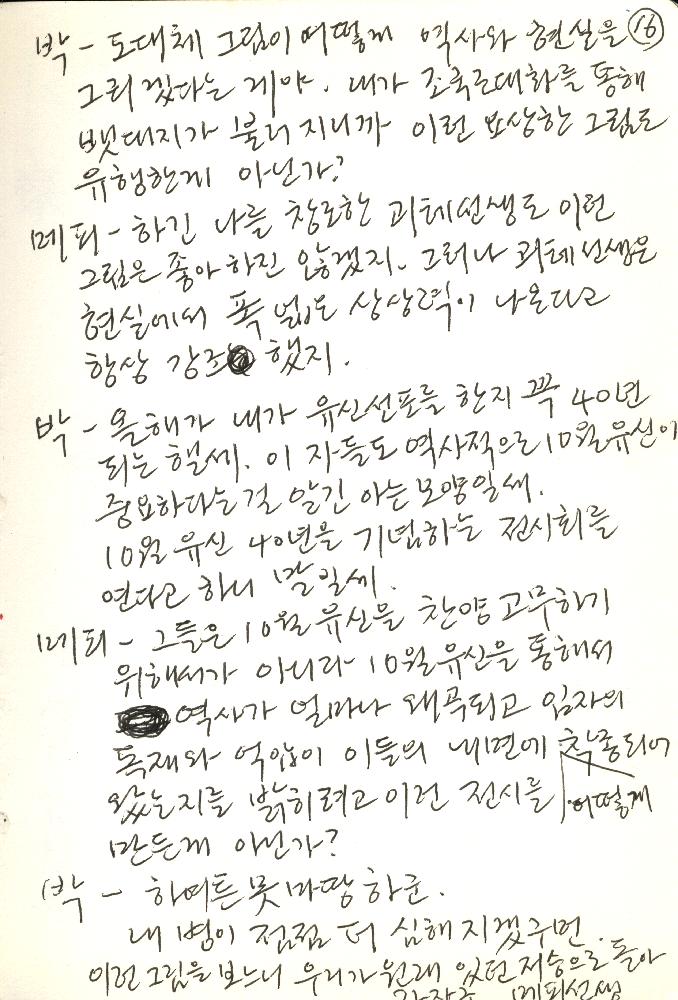 박 - 도대체 그림이 어떻게 역사와 현실을 ⑯
그리겠다는 게야. 내가 조국근대화를 통해
뱃대지가 불러지니까 이런 요상한 그림도
유행한게 아닌가?
메피 - 하긴 나를 창조한 괴테선생도 이런
그림은 좋아하진 않겠지. 그러나 괴테선생은
현실에서 폭넓은 상상력이 나온다고
항상 강조 했지.
박 - 올해가 내가 유신선포를 한지 꼭 40년
되는 핼세. 이 자들도 역사적으로 10월유신이
중요하다는걸 알긴 아는 모양일세.
10월 유신 40년을 기념하는 전시회를
연다고 하니 말일세.
메피 - 그들은 10월 유신을 찬양 고무하기
위해서가 아니라 10월유신을 통해서
역사가 얼마나 왜곡되고 임자의
독재와 억압이 이들의 내면에 착종되어
왔는지를 밝히려고 이런 전시를 어떻게
만든게 아닌가?
박 - 하여튼 못마땅하군.
내 병이 점점 더 심해지겠구먼.
이런 그림을 보느니 우리가 원래 있던 저승으로 돌아
메피선생